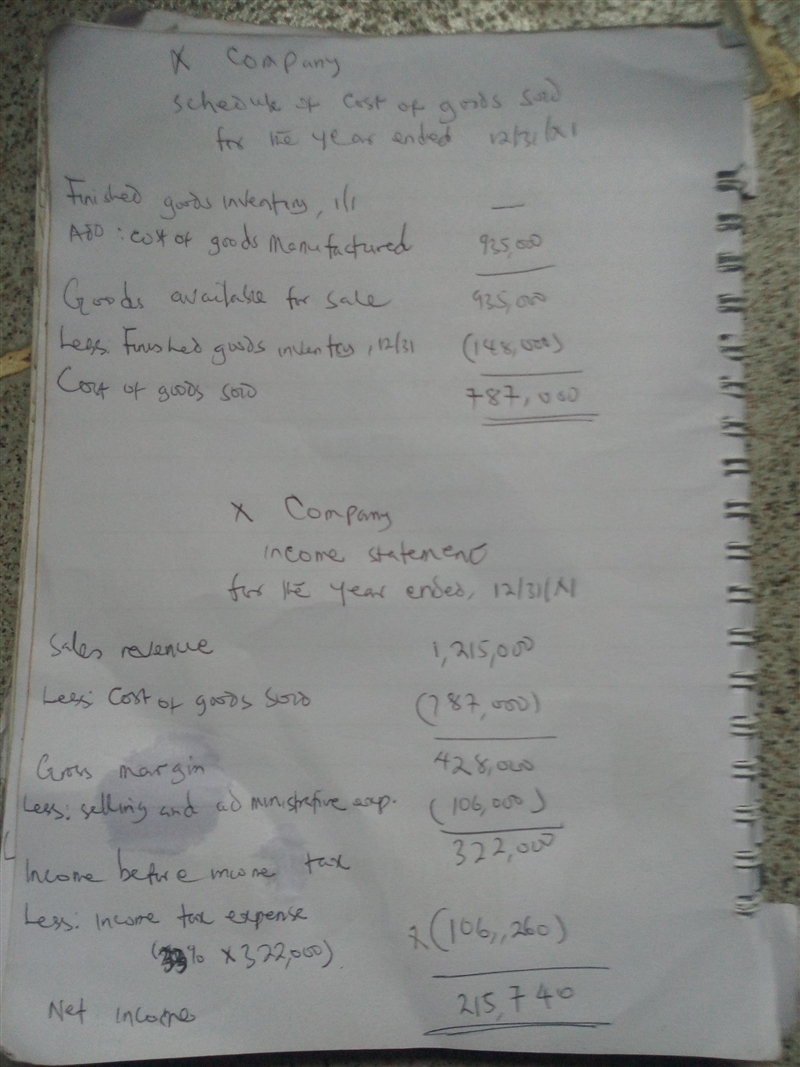 X Company
Schedule of Cost of goods Sold
for the year ended 12/31/X1
Finished goods inventory, 1/1 —
ADD: Cost of goods Manufactured 935,000
Goods available for sale 935,000
Less Finished goods inventory, 12/31 (148,000)
Cost of goods sold 787,000
X Company
income statement
for the year ended, 12/31/X1
Sales revenue 1,215,000
Less: Cost of goods sold (787,000)
Gross margin 428,000
Less: selling and administrative exp. (106,000)
Income before income tax 322,000
Less: income tax expense (106,,260)
(33% x 322,000)
Net income 215,740